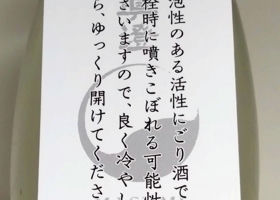 泡性のある活性にごり酒で
栓時に噴きこぼれる可能性
ざいますので、良く冷やし
ら、ゆっくり開けてくださ
真澄